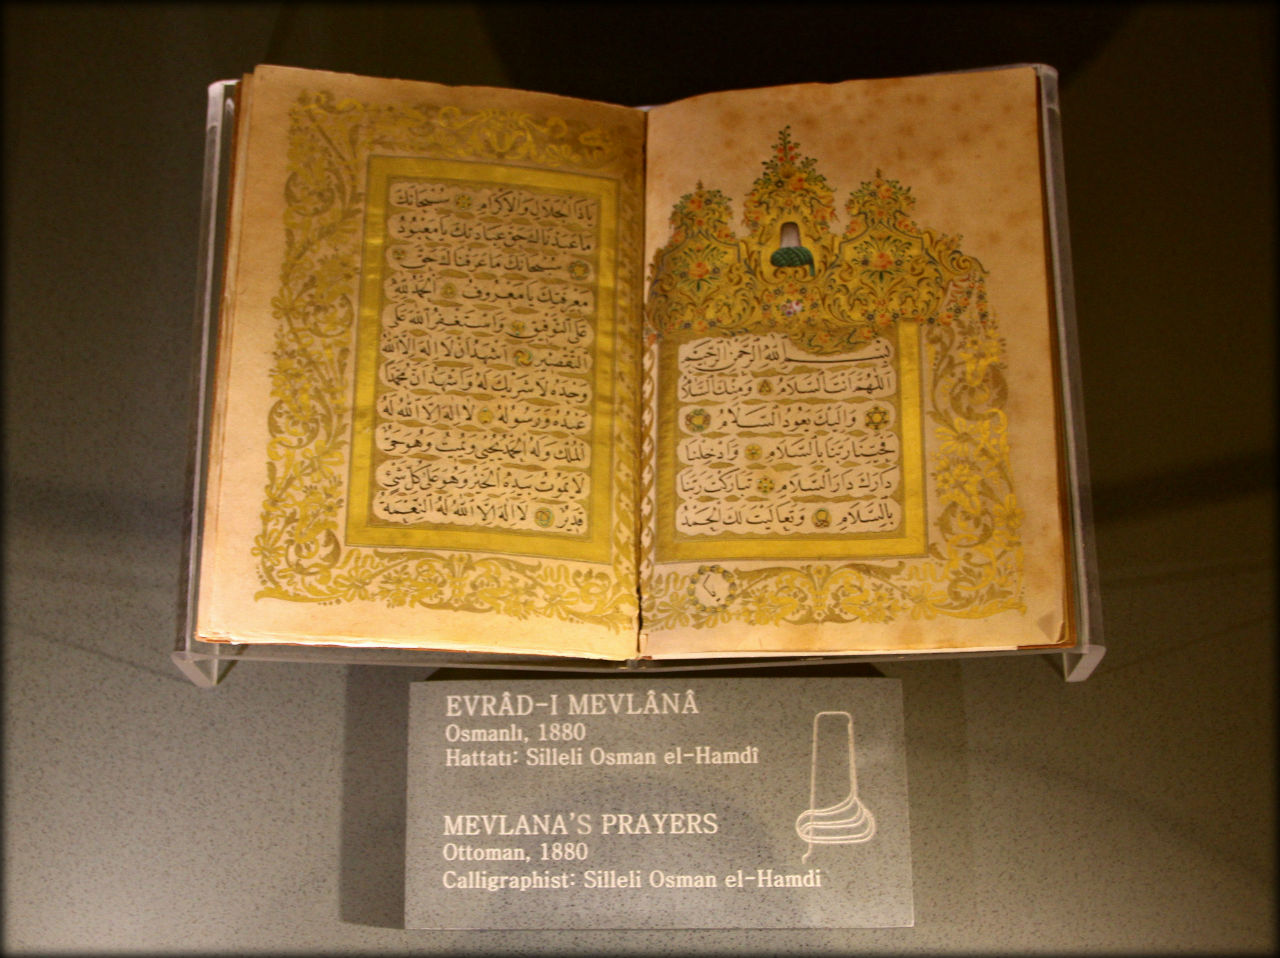 بسم الله الرحمن الرحيم
اللهم انت السلام ومنك السلا
م واليك يعود السلام
فحينا ربنا بالسلام وادخلنا
دارك دار السلام تباركت ربنا
بالسلام وتعاليت لك الحمد
ياذا الجلال والاكرام سبحانك
ما عبدناك حق عبادتك يا معبود
سبحانك ما عرفناك حق
معرفتك يا معروف الحمد لله
على التوفيق واستغفر الله على
التقصير اشهد ان لا اله الا الله
وحده لا شريك له واشهد ان محمدا
عبده ورسوله لا اله الا الله له
الملك وله الحمد يحيي ويميت وهو حي
لا يموت بيده الخير وهو على كل شئ
قدير لا اله الا الله له النعمة
EVRÂD-I MEVLÂNÂ
Osmanlı, 1880
Hattatı: Silleli Osman el-Hamdî
MEVLANA'S PRAYERS
Ottoman, 1880
Calligraphist: Silleli Osman el-Hamdi